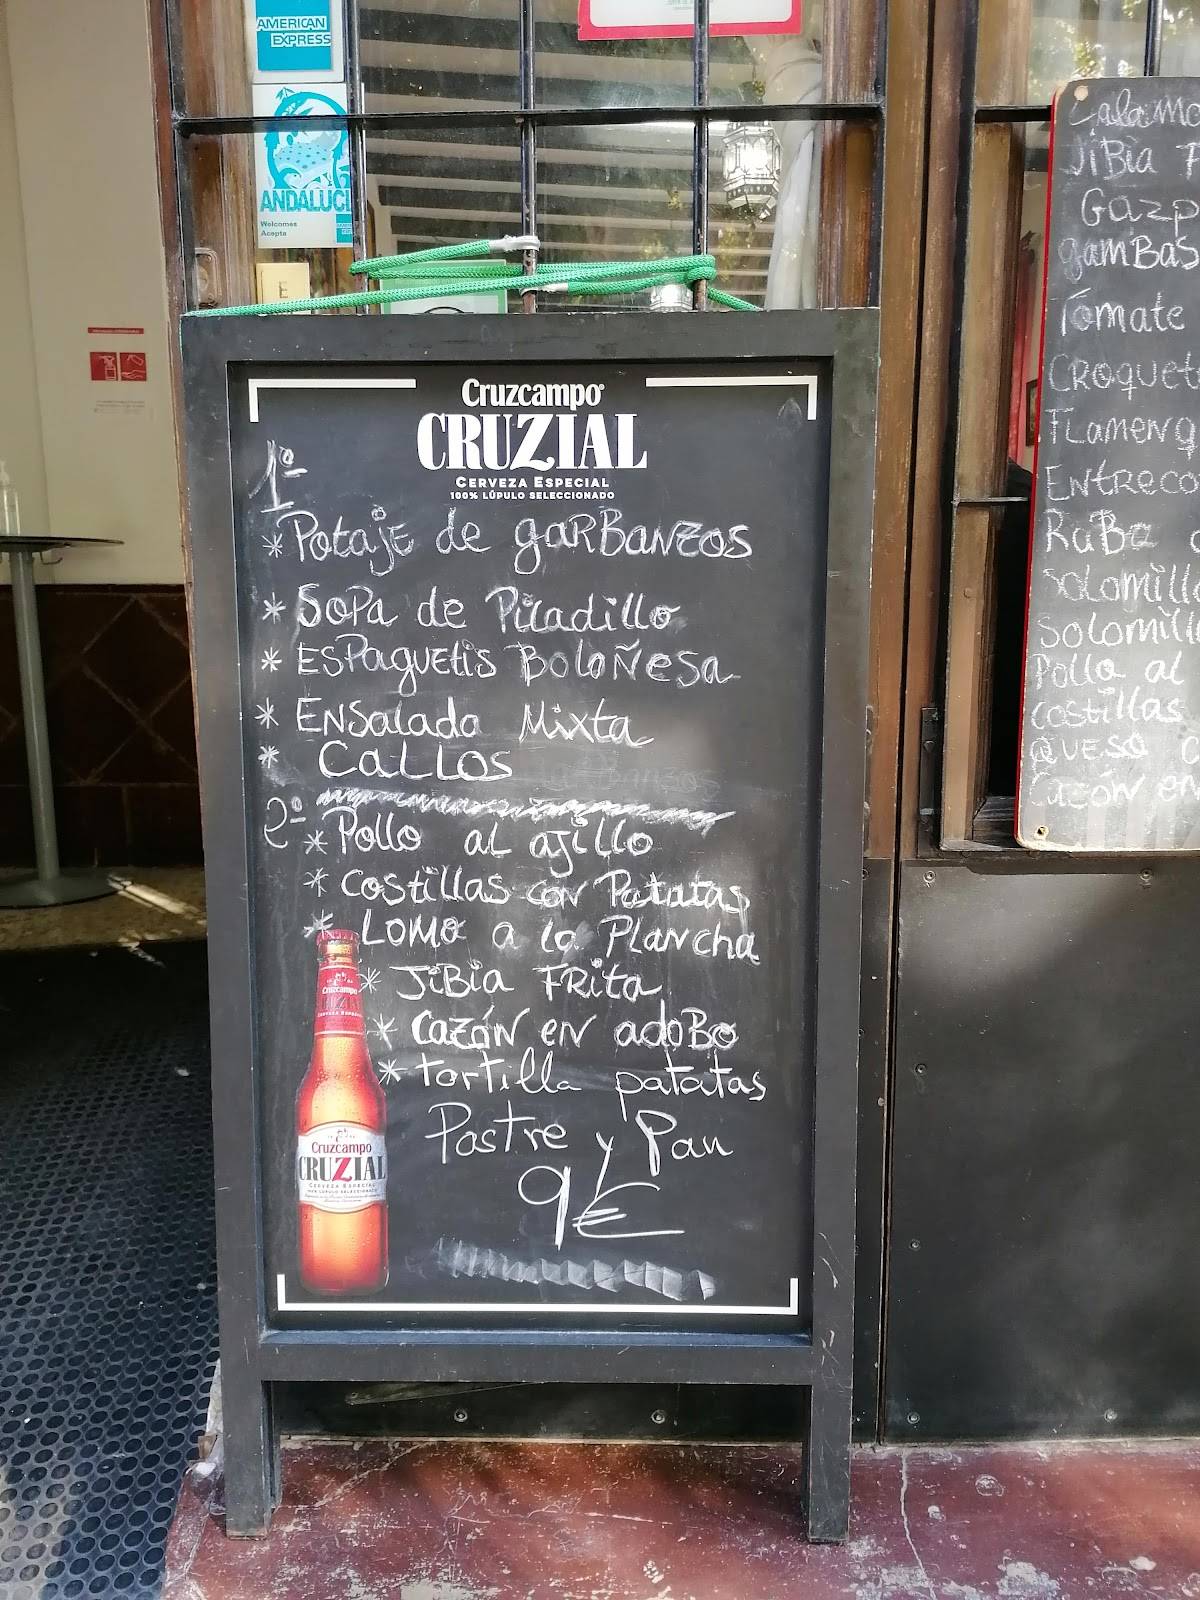 AMERICAN
EXPRESS
ANDALUCI
Welcomes
Acepta
E
Cruzcampo
CRUZIAL
CERVEZA ESPECIAL
100% LÚPULO SELECCIONADO
1º
* Potaje de garbanzos
* Sopa de Picadillo
* Espaguetis Boloñesa
* Ensalada Mixta
* Callos
2º
* Pollo al ajillo
* Costillas con Patatas
* Lomo a la Plancha
* Jibia Frita
* Cazón en adobo
* tortilla patatas
Postre y Pan
9€
Cruzcampo
CRUZIAL
CERVEZA ESPECIAL
Cruzcampo
CRUZIAL
CERVEZA ESPECIAL
100% LÚPULO SELECCIONADO
Calamo
Jibia F
Gazp
gambas
Tomate
Croquet
Flamenq
Entreco
Rabo
Solomillo
Solomill
Pollo al
costillas
Queso
Cazón en